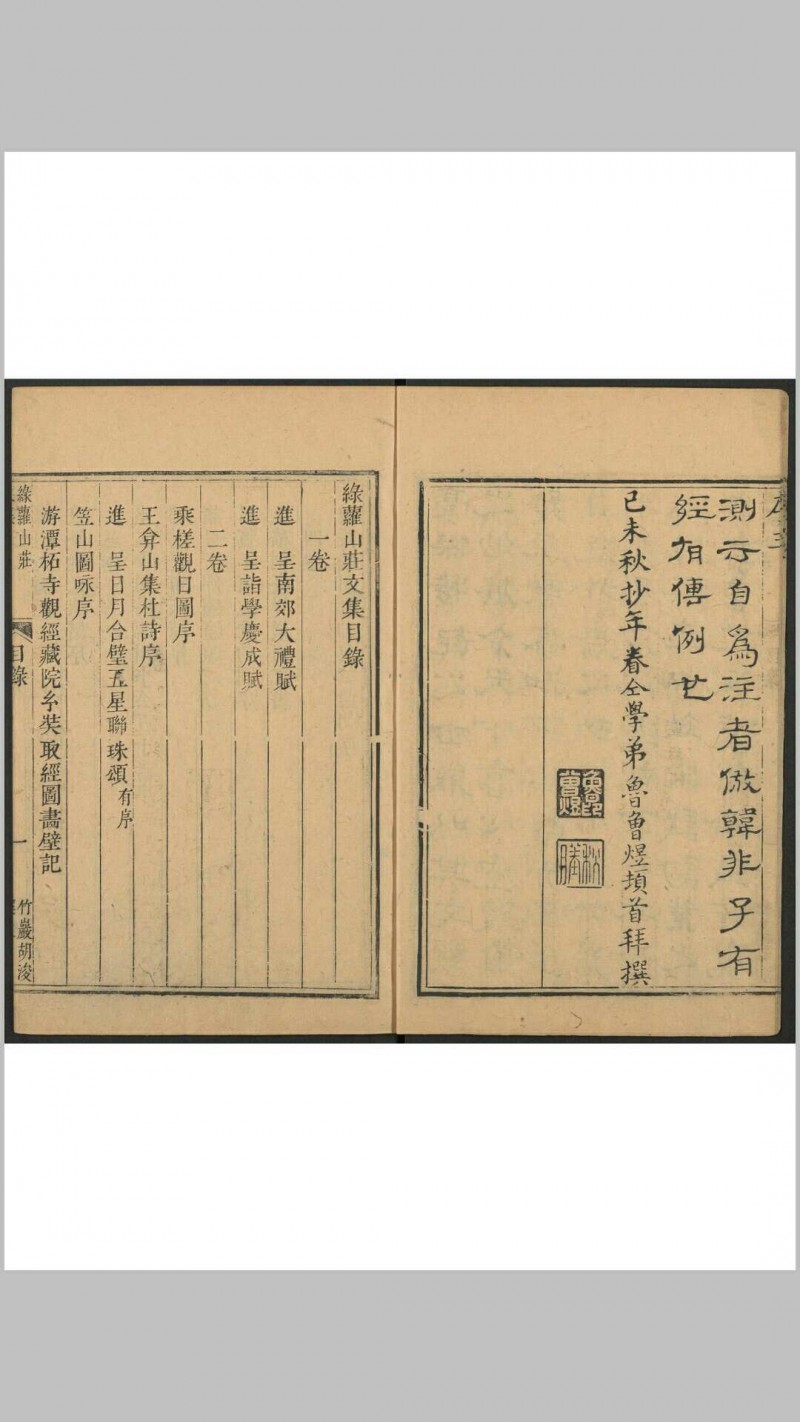 測云自為注者倣韓非子有
經有傳例也
己未秋抄年眷仝學弟魯曾煜頓首拜撰
綠蘿山莊文集目錄
一卷
進 呈南郊大禮賦
進 呈詣學慶成賦
二卷
乘槎觀日圖序
王弇山集杜詩序
進 呈日月合璧五星聯珠頌有序
笠山圖咏序
游潭柘寺觀經藏院玄奘取經圖畵壁記
綠蘿山莊
目錄
一
竹巖胡浚